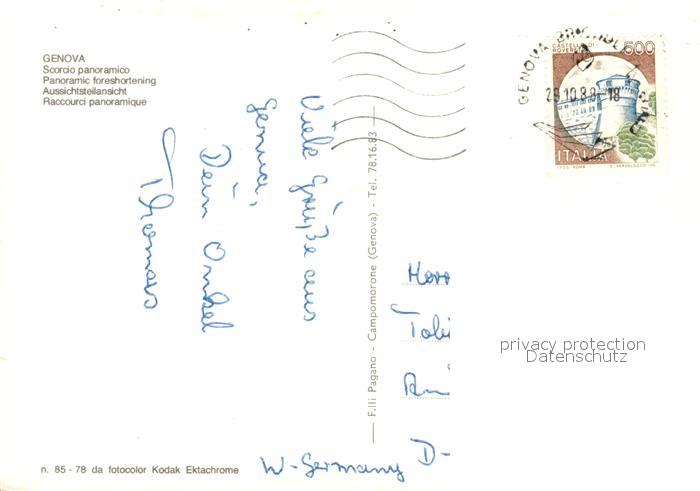 GENOVA
Scorcio panoramico
Panoramic foreshortening
Aussichtsteilansicht
Raccourci panoramique
CASTELLO DI
ROVERETO
500
ITALIA
29.10.88-18
GENOVA
Viele Grüße aus
Genua,
Dein Onkel
Thomas
F.lli Pagano - Campomorone (Genova) - Tel. 78.16.83
Herr
Tobi
privacy protection
Datenschutz
D-
W-Germany
n. 85 - 78 da fotocolor Kodak Ektachrome